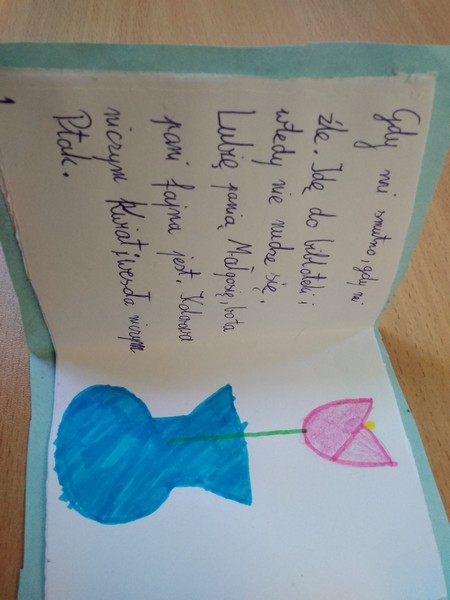 Gdy mi smutno, gdy mi
źle. Idę do bibloteki i
wtedy nie nudze się.
Lubię panią Małgosię, bo ta
pani fajna jest. Zdrowa
niczym Kwiat i wesoła niczym
Ptak.